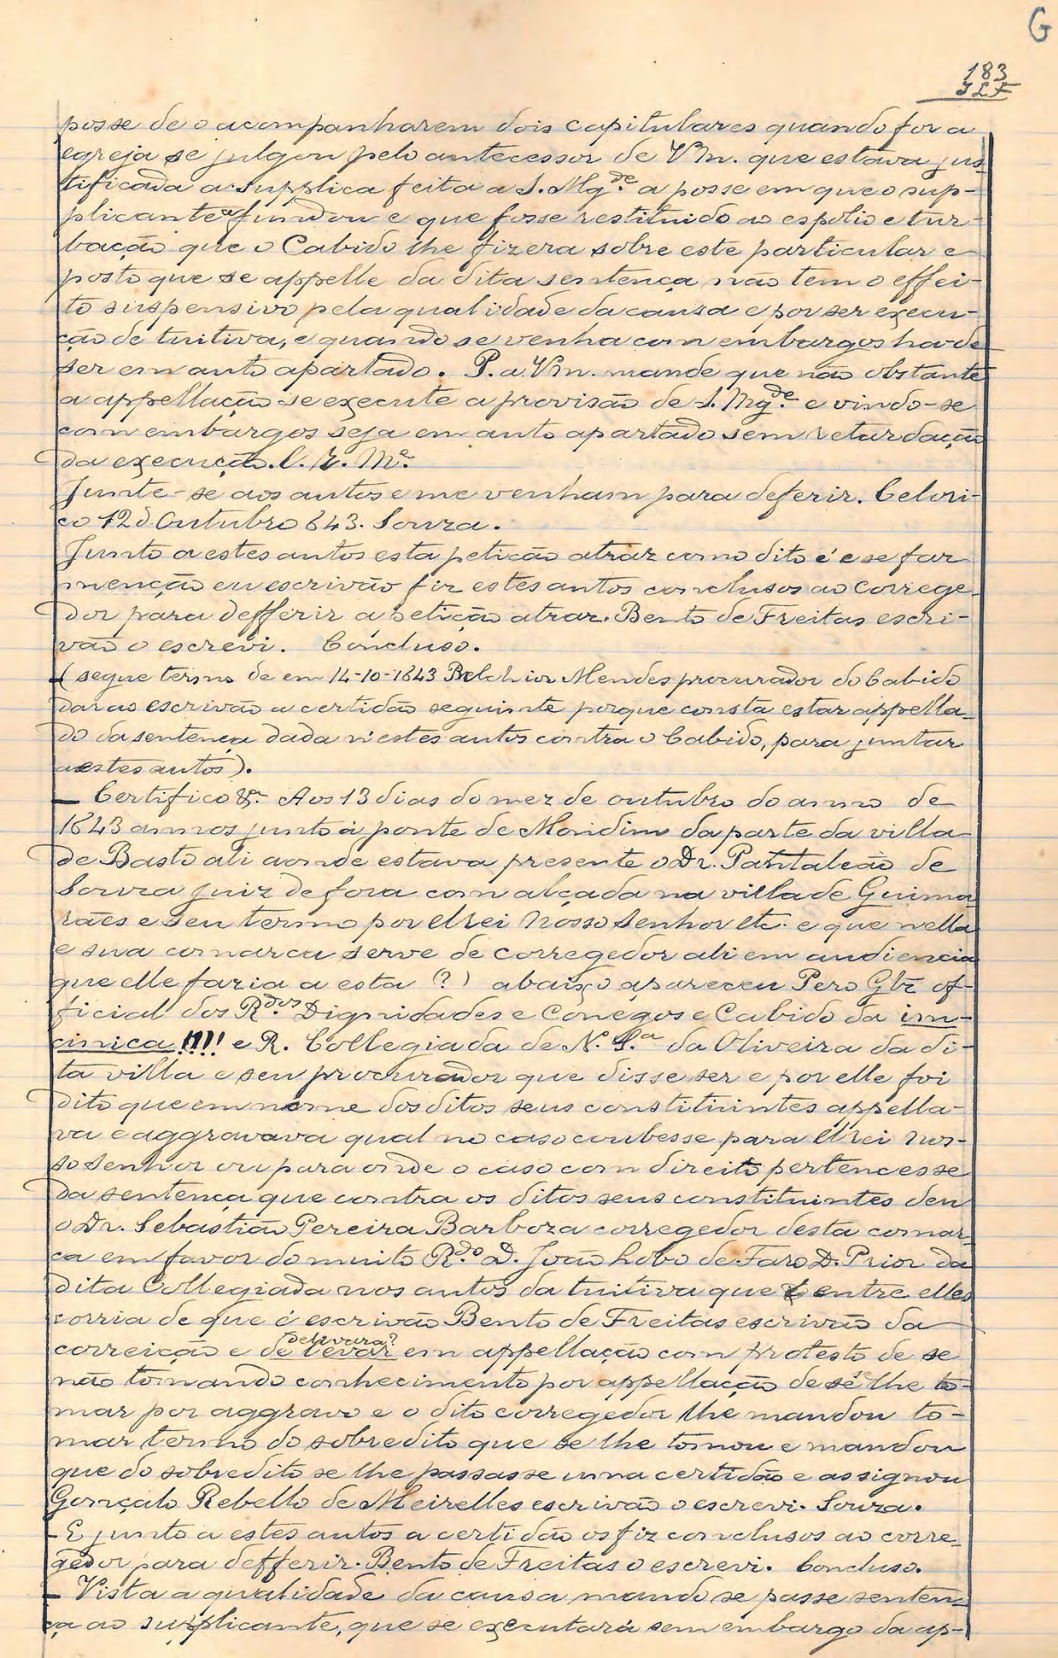 G
183
posse de o acompanharem dois capitulares quando for a
egreja se julgou pelo antecessor de Vm. que estava jus
tificada a supplica feita a S. Mg.de a posse em que o sup-
plicante fundou e que fosse restituido ao espolio e tur-
bação que o Cabido lhe fizera sobre este particular e
posto que se appelle da dita sentença não tem o effei-
to suspensivo pela qualidade da causa e por ser execu-
ção de tuitiva, e quando se venha com embargos ha de
ser em auto apartado. P. a Vm. mande que não obstante
a appellação se execute a provisão de S. Mg.de e vindo-se
com embargos seja em auto apartado sem retardação
da execução. E. R. M.ce
Junte-se aos autos e me venham para deferir. Celori-
co 12 d'Outubro 643. Souza.
Junto a estes autos esta petição atraz como dito é e se faz
menção eu escrivão fiz estes autos conclusos ao correge-
dor para defferir a petição atraz. Bento de Freitas escri-
vão o escrevi. Concluso.
(segue termo de em 14-10-1643 Belchior Mendes procurador do Cabido
dar ao escrivão a certidão seguinte porque consta estar appella-
do da sentença dada n'estes autos contra o Cabido, para juntar
a estes autos).
— Certifico &.a Aos 13 dias do mez de outubro do anno de
1643 annos junto á ponte de Mondim da parte da villa
de Basto ali aonde estava presente o Dr. Pantaleão de
Souza juiz de fora com alçada na villa de Guima
rães e seu termo por el rei nosso senhor etc. e que nella
e sua comarca serve de corregedor ali em audiencia
que elle fazia a esta (?) abaixo apareceu Pero Glz of-
ficial dos R.dos Dignidades e Conegos e Cabido da in-
cinica!!!! e R. Collegiada de N. S.a da Oliveira da di-
ta villa e seu procurador que disse ser e por elle foi
dito que em nome dos ditos seus constituintes appella-
va e aggravava qual no caso coubesse para el rei nos-
so senhor ou para onde o caso com direito pertencesse
da sentença que contra os ditos seus constituintes deu
o Dr. Sebastião Pereira Barboza corregedor desta comar
ca em favor do muito R.do D. João Lobo de Faro D. Prior da
dita Collegiada nos autos da tuitiva que entre elles
corria de que é escrivão Bento de Freitas escrivão da
correição e de levar em appellação com protesto de se
não tomando conhecimento por appellação de se lhe to-
mar por aggravo e o dito corregedor lhe mandou to-
mar termo do sobredito que se lhe tomou e mandou
que do sobredito se lhe passasse uma certidão e assignou
Gonçalo Rebello de Meirelles escrivão o escrevi. Souza.
— E junto a estes autos a certidão os fiz conclusos ao corre-
gedor para defferir. Bento de Freitas o escrevi. Concluso.
— Vista a qualidade da causa mando se passe senten-
ça ao supplicante, que se executará sem embargo da ap-